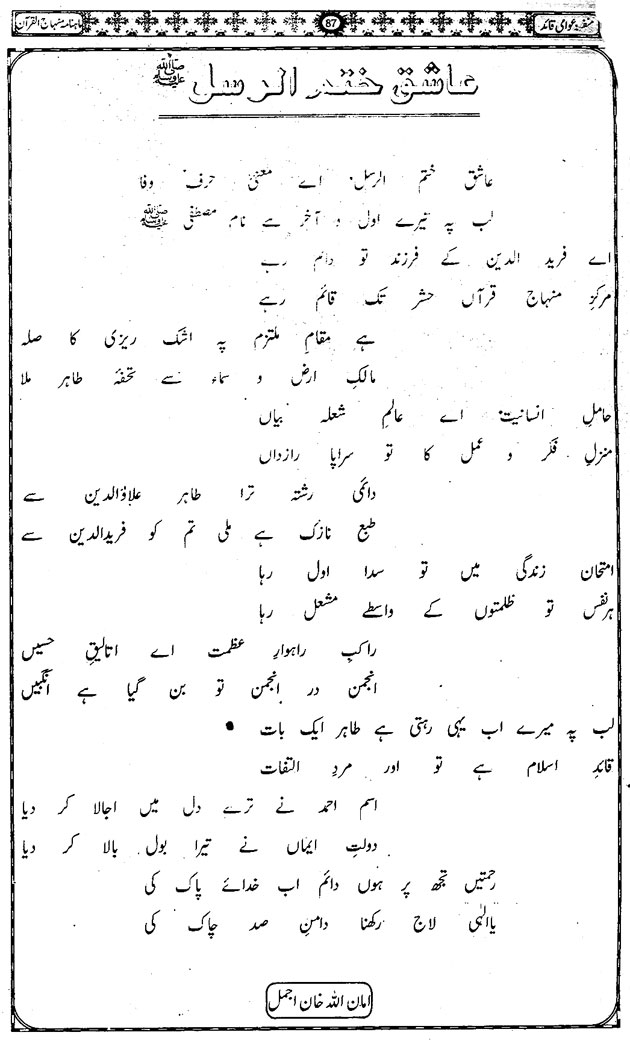 ماہنامہ منہاج القرآن
87
عوامی قائد
عاشق ختم الرسل ﷺ
عاشق ختم الرسل اے معنیٔ حرف وفا
لب پہ تیرے اول و آخر ہے نام مصطفیٰ ﷺ
اے فرید الدین کے فرزند تو دائم رہے
مرکزِ منہاج قرآں حشر تک قائم رہے
ہے مقامِ ملتزم پہ اشک ریزی کا صلہ
مالکِ ارض و سماء سے تحفہ طاہر ملا
حاملِ انسانیت اے عالمِ شعلہ بیاں
منزلِ فکر و عمل کا تو سراپا رازداں
دائمی رشتہ ترا طاہر علاؤالدین سے
طبع نازک ہے ملی تم کو فریدالدین سے
امتحان زندگی میں تو سدا اول رہا
ہرنفس تو ظلمتوں کے واسطے مشعل رہا
راکبِ راہوارِ عظمت اے اتالیقِ حسیں
انجمن در انجمن تو بن گیا ہے آنگبیں
لب پہ میرے اب یہی رہتی ہے طاہر ایک بات
قائدِ اسلام ہے تو اور مردِ التفات
اسم احمد نے ترے دل میں اجالا کر دیا
دولتِ ایماں نے تیرا بول بالا کر دیا
رحمتیں تجھ پر ہوں دائم اب خدائے پاک کی
یاالٰہی لاج رکھنا دامنِ صد چاک کی
امان اللہ خان اجمل